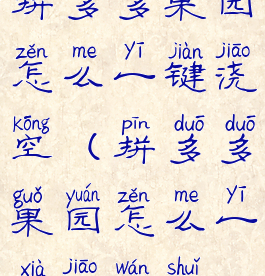 拼多多果园
zěn me yī jiàn jiāo
怎么一键浇
kōng pīn duō duō
空（拼多多
guǒ yuán zěn me yī
果园怎么一
xià jiāo wán shuǐ